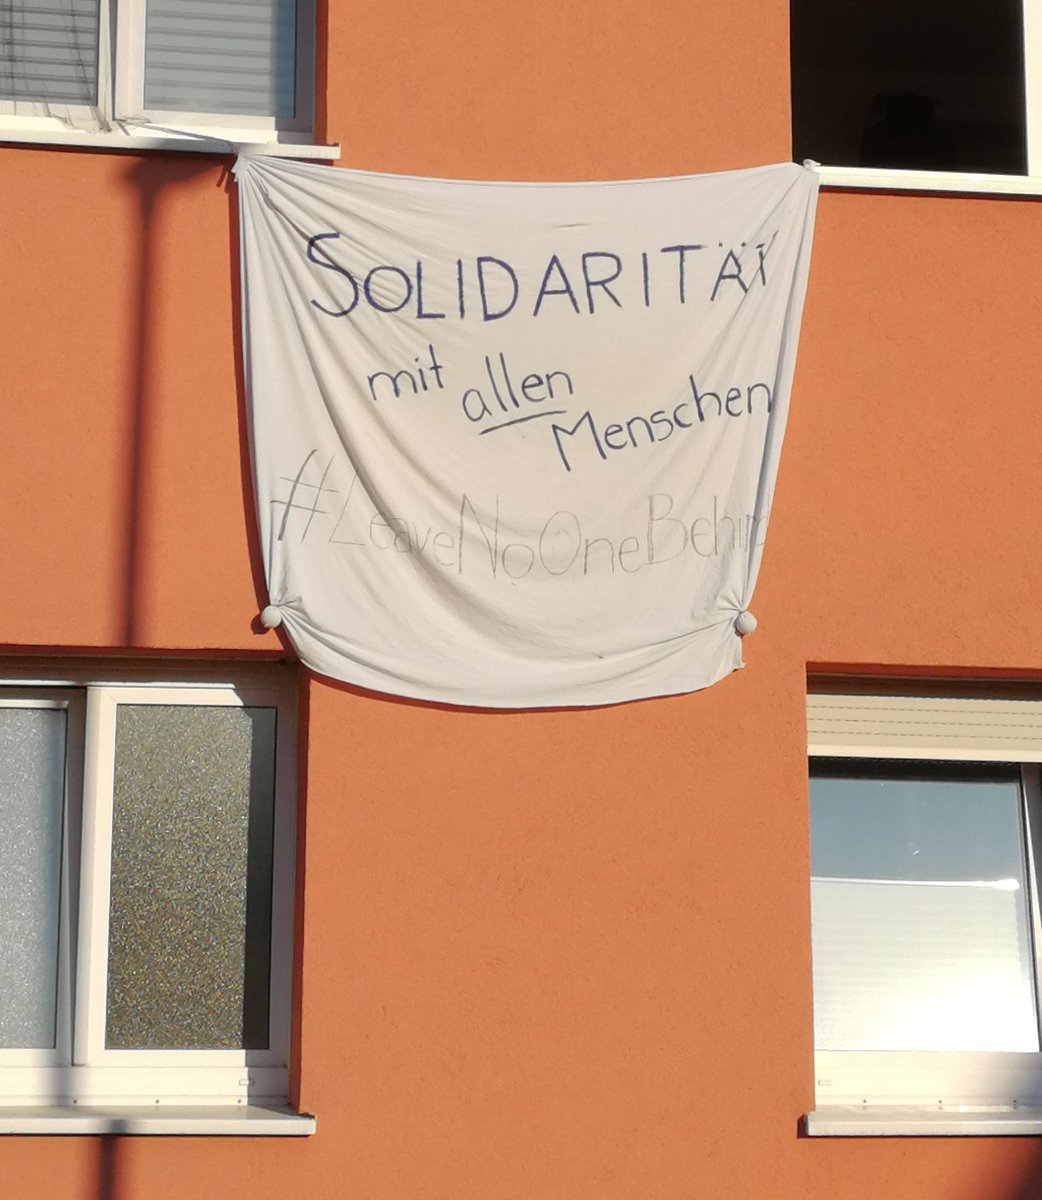 SOLIDARITÄT
mit allen
Menschen
#LeaveNoOneBehin